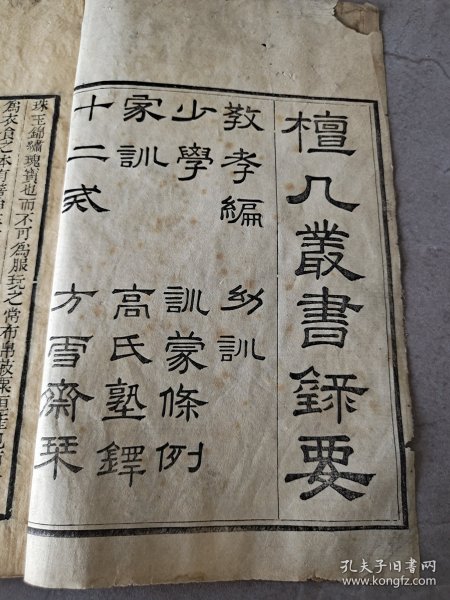 檀几叢書錄要
教孝編 幼訓
少學 訓蒙條例
家訓 高氏塾鐸
十二戒 方雪齋栞
珠玉錦繡瑰寶也而不可為服玩之常布帛菽粟
為衣食之
孔夫子旧书网
www.kongfz.com